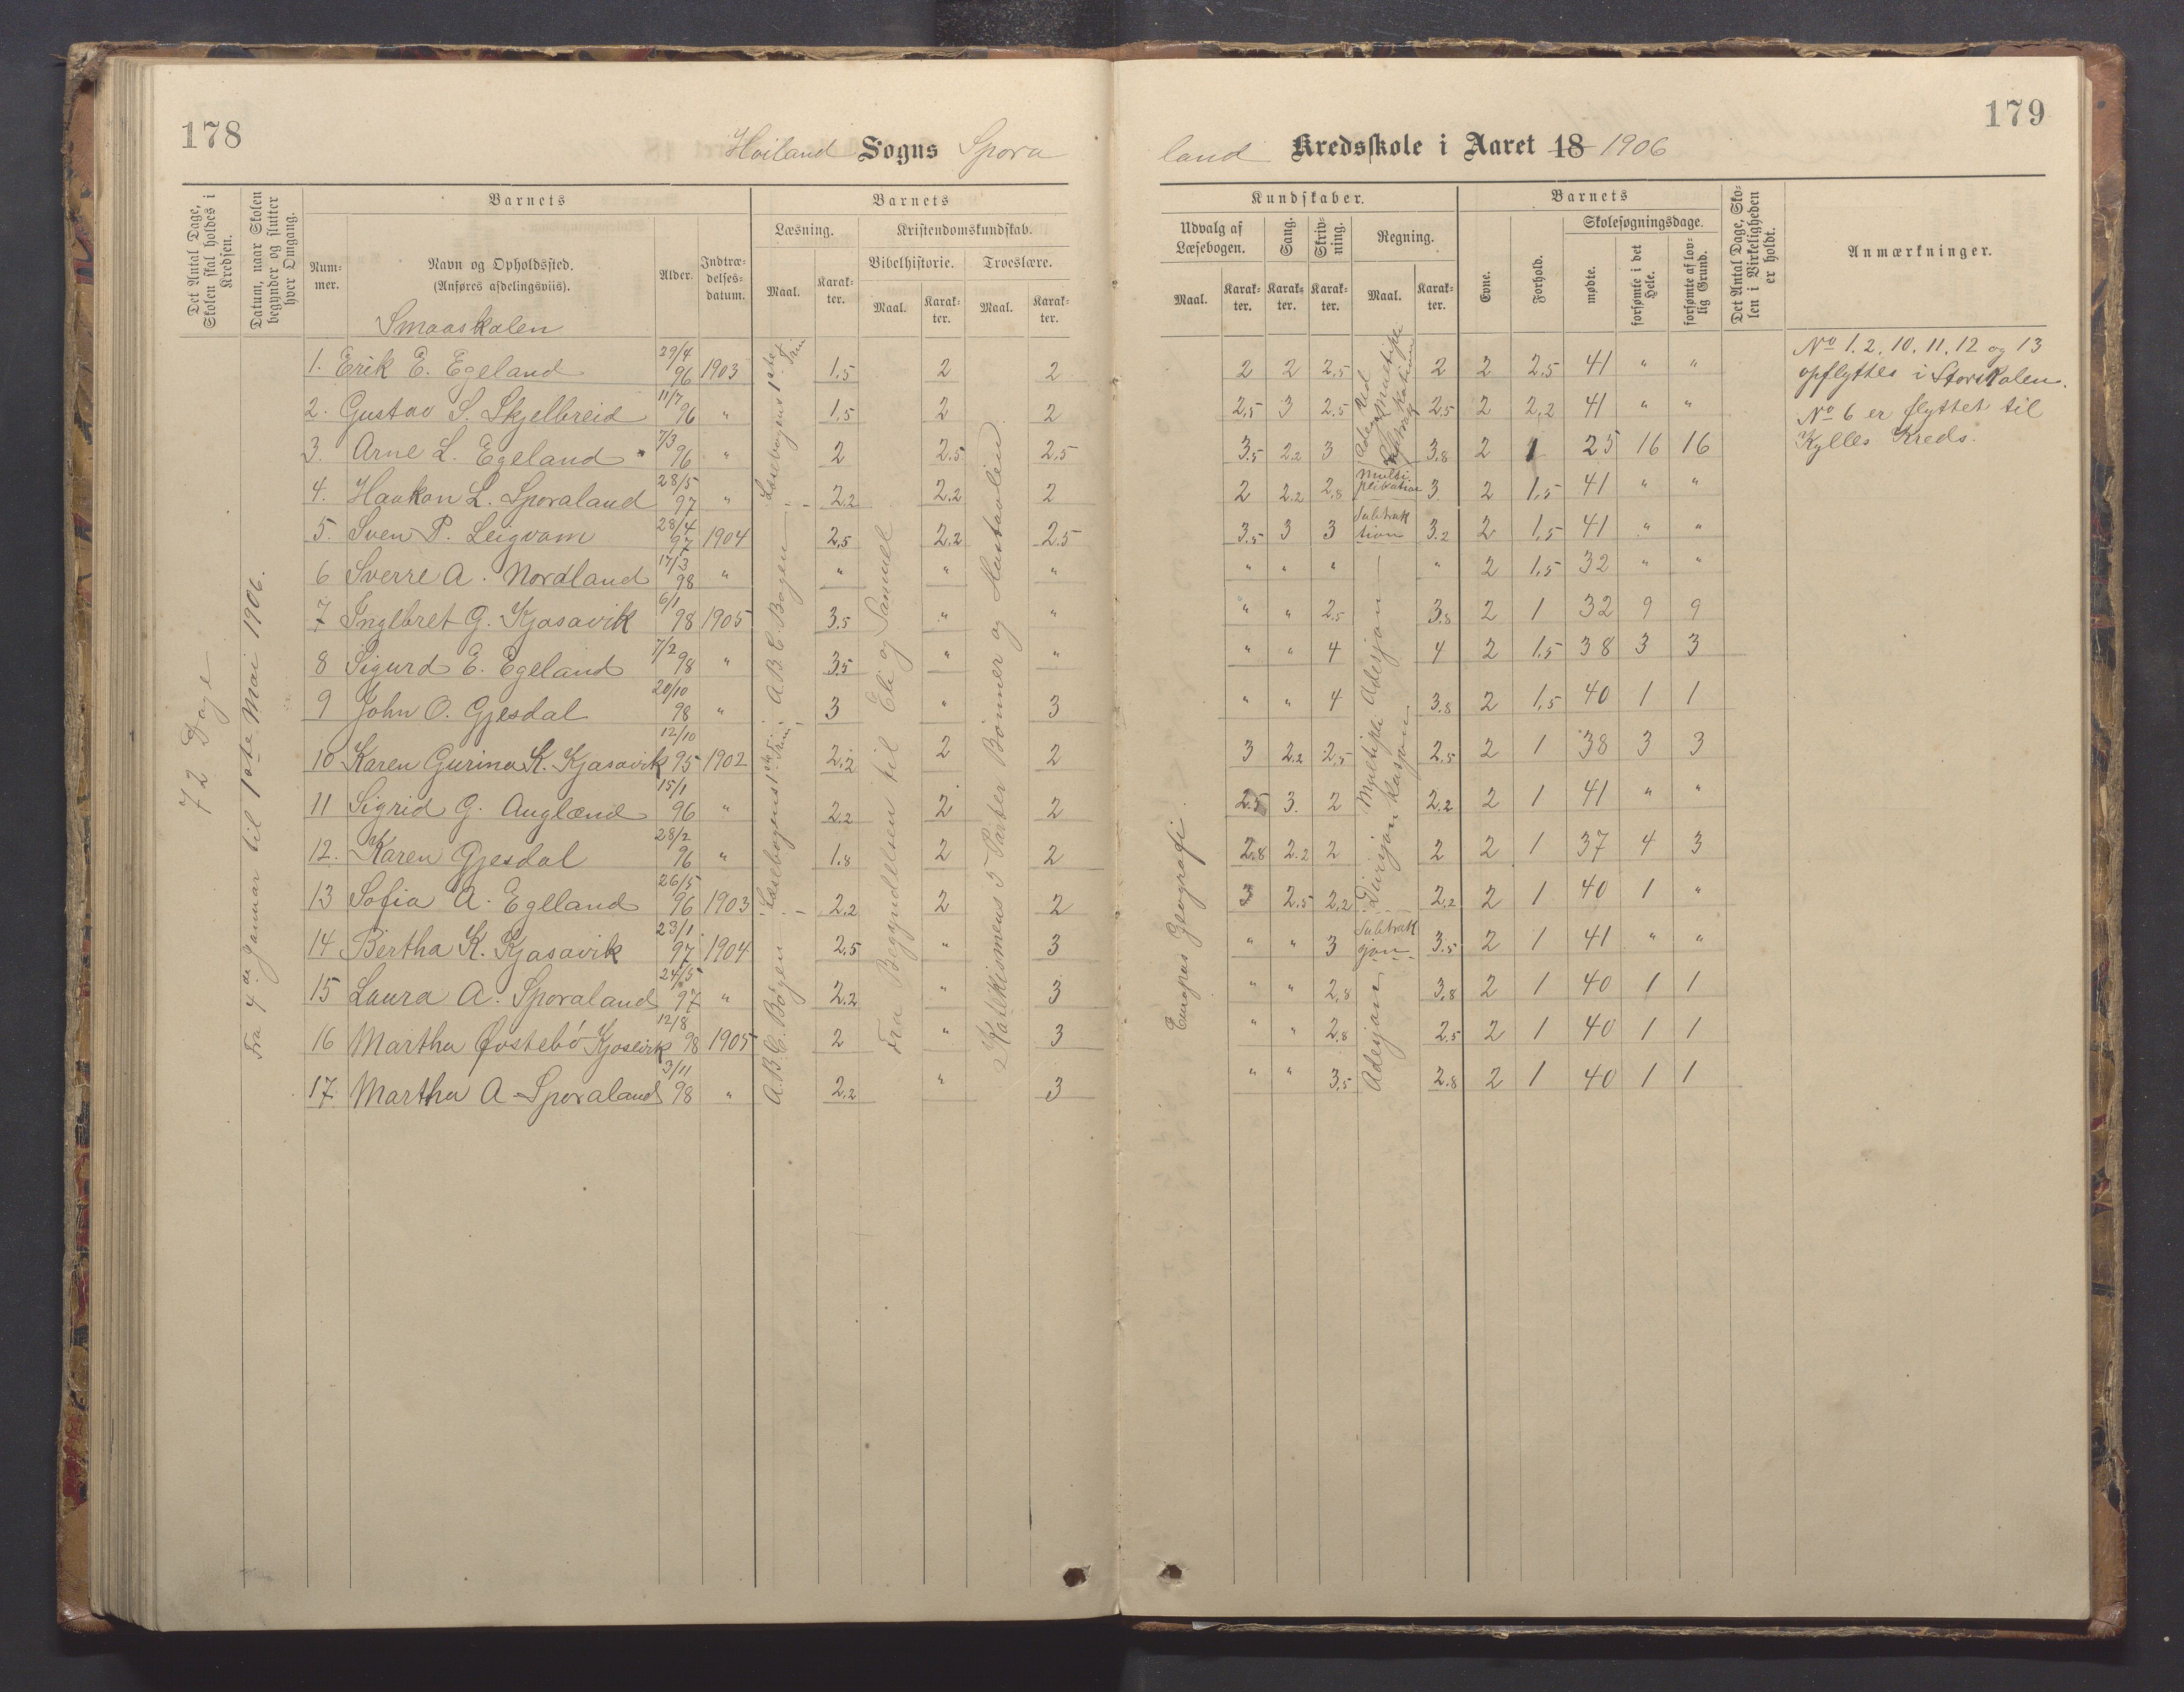 178
Hoiland Sogns Spora
Det Antal Dage, Skolen skal holdes i Kredsen.
Datum, naar Skolen begynder og slutter hver Omgang.
Barnets
Barnets
Læsning.
Kristendomskundskab.
Bibelhistorie.
Troeslære.
Nummer.
Navn og Opholdssted.
(Anføres afdelingsviis).
Alder.
Indtrædelsesdatum.
Maal.
Karakter.
Maal.
Karakter.
Maal.
Karakter.
Smaaskolen
72 Dage
Fra 4de Januar til 1ste Mai 1906.
1. Erik E. Egeland 29/4 96 1903 1,5 2 2
2. Gustav S. Skjelbreid 11/7 96 " 1,5 2 2
3. Arne L. Egeland 7/3 96 " 2 2,5 2,5
4. Haakon L. Sporaland 28/5 97 " 2,2 2,2 2
5. Sven P. Leigvam 28/4 97 1904 2,5 2,2 2,5
6 Sverre A. Nordland 17/3 98 " " " "
7 Ingebret G. Kjosavik 6/1 98 1905 3,5 " "
8 Sigurd E. Egeland 7/2 98 " 3,5 " "
9 John O. Gjesdal 20/10 98 " 3 " 3
10 Karen Gurina K. Kjosavik 12/10 95 1902 2,2 2 2
11 Sigrid G. Auglænd 15/1 96 " 2,2 2 2
12. Karen Gjesdal 28/2 96 " 1,8 2 2
13 Sofia A. Egeland 26/5 96 1903 2,2 2 2
14 Bertha K. Kjosavik 23/1 97 1904 2,5 " 3
15 Laura A. Sporaland 24/5 97 " 2,2 " 3
16 Martha Øvstebö Kjosevik 12/8 98 1905 2 " 3
17. Martha A Sporaland 3/11 98 " 2,2 " 3
Læsebogens 1ste Trin
A.B.C. Bogen
Læsebogens 1ste Trin
A.B.C. Bogen
Fra Begyndelsen til Eli og Samuel
Katekismens 5 Parter Bønner og Hustavlen
179
land Kredsskole i Aaret 18 1906
Kundskaber.
Barnets
Udvalg af Læsebogen.
Sang.
Skrivning.
Regning.
Evne.
Forhold.
Skolesøgningsdage.
mødte.
forsømte i det Hele.
forsømte af lovlig Grund.
Det Antal Dage, Skolen i Virkeligheden er holdt.
Anmærkninger.
Maal.
Karakter.
Karakter.
Karakter.
Maal.
Karakter.
2 2 2,5 2 2 2,5 41 " "
2,5 3 2,5 2,5 2 2,2 41 " "
3,5 2,2 3 3,8 2 1 25 16 16
2 2,2 2,8 Multiplikation 3 2 1,5 41 " "
3,5 3 3 Subtraktion 3,2 2 1,5 41 " "
" " " " 2 1,5 32 " "
" " 2,5 3,8 2 1 32 9 9
" " 4 4 2 1,5 38 3 3
" " 4 3,8 2 1,5 40 1 1
3 2,2 2,5 2,5 2 1 38 3 3
2,5 3. 2 2,2 2 1 41 " "
2,8 2,2 2 2 2 1 37 4 3
3 2,5 2,2 2,2 2 1 40 1 "
" " 3 Subtraksjon 3,5 2 1 41 " "
" " 2,8 3,8 2 1 40 1 1
" " 2,8 2,5 2 1 40 1 1
" " 3,5 2,8 2 1 40 1 1
Europas Geografi.
Adisjon
Divisjon
Adisjon
No 1. 2. 10. 11. 12 og 13
opflyttes i Storskolen.
No 6 er flyttet til
Kylles Kreds.